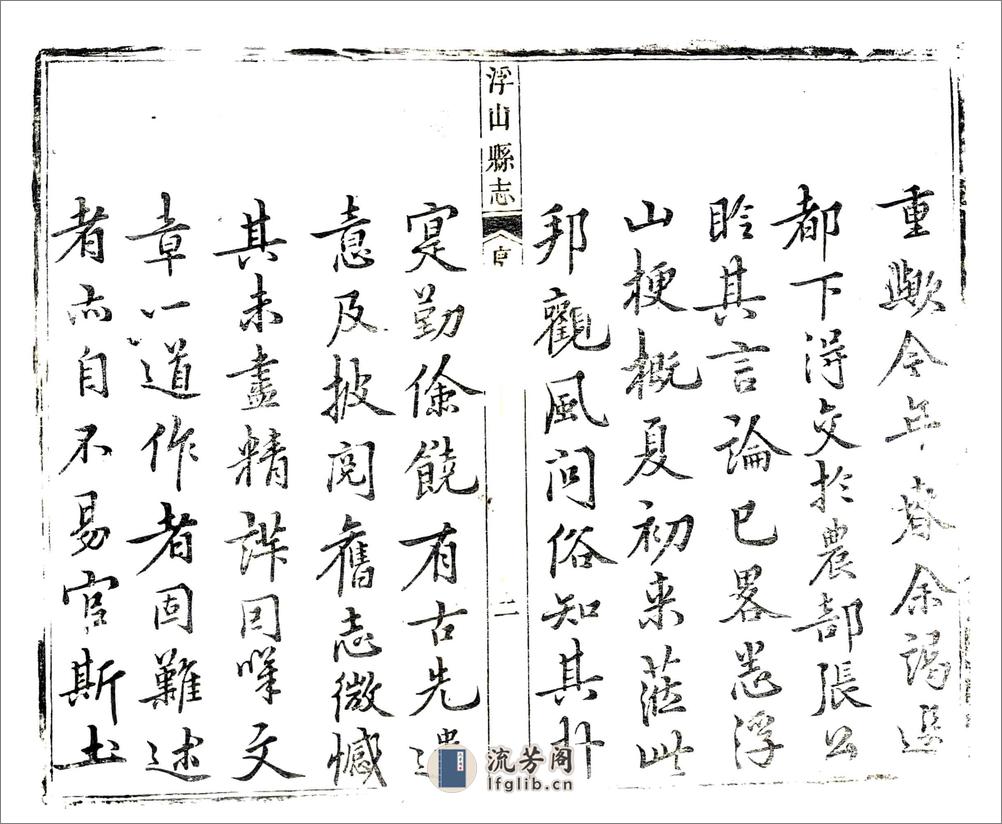 重歟今年春余謁選
都下得交於農部張公
聆其言論已畧悉浮
山梗概夏初来蒞此
邦觀風問俗知其朴
浮山縣志
二
寔勤儉饒有古先遺
意及披閲舊志微憾
其未盡精詳因嘆文
章一道作者固難述
者亦自不易官斯土
流芳阁
lfglib.cn